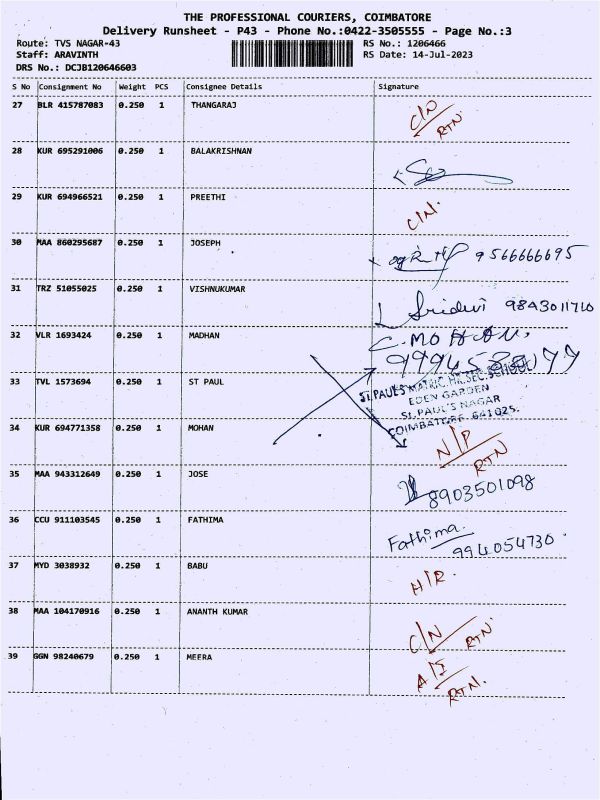 THE PROFESSIONAL COURIERS, COIMBATORE
Delivery Runsheet - P43 - Phone No.:0422-3505555 - Page No.:3
Route: TVS NAGAR-43 RS No.: 1206466
Staff: ARAVINTH RS Date: 14-Jul-2023
DRS No.: DCJB120646603
S No Consignment No Weight PCS Consignee Details Signature
27 BLR 415787083 0.250 1 THANGARAJ C/N
RTN
28 KUR 695291006 0.250 1 BALAKRISHNAN
29 KUR 694966521 0.250 1 PREETHI C/N.
30 MAA 860295687 0.250 1 JOSEPH 9566666695
31 TRZ 51055025 0.250 1 VISHNUKUMAR Sridevi 9843011710
32 VLR 1693424 0.250 1 MADHAN C. MOHAN,
33 TVL 1573694 0.250 1 ST PAUL ST.PAUL'S MATRIC.HR.SEC.SCHOOL
EDEN GARDEN
ST.PAUL'S NAGAR
COIMBATORE-641025.
34 KUR 694771358 0.250 1 MOHAN N/P
RTN
35 MAA 943312649 0.250 1 JOSE 8903501098
36 CCU 911103545 0.250 1 FATHIMA Fathima.
9940054730.
37 MYD 3038932 0.250 1 BABU H/R.
38 MAA 104170916 0.250 1 ANANTH KUMAR C/N RTN
39 GGN 98240679 0.250 1 MEERA A/I
RTN.